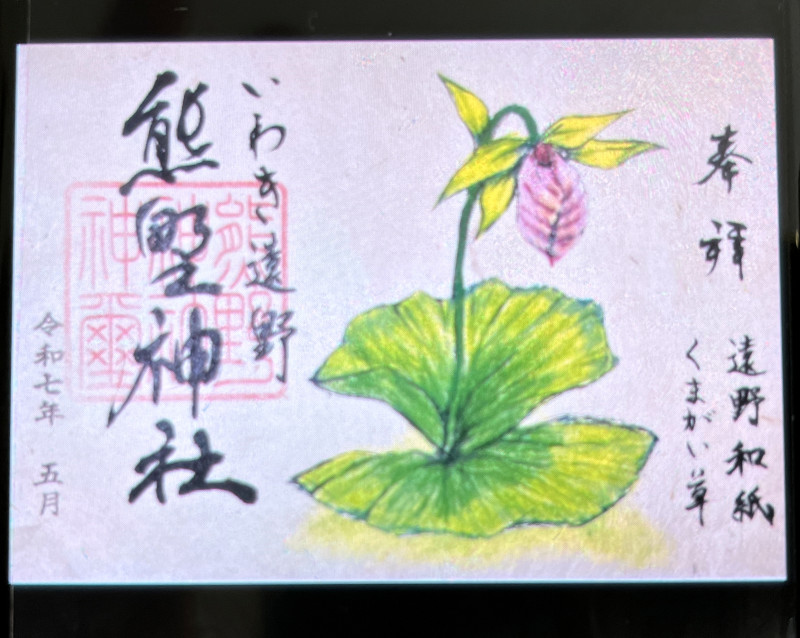 奉拝
遠野和紙
くまがい草
いわき遠野
熊野神社
熊野神社神璽
令和七年 五月